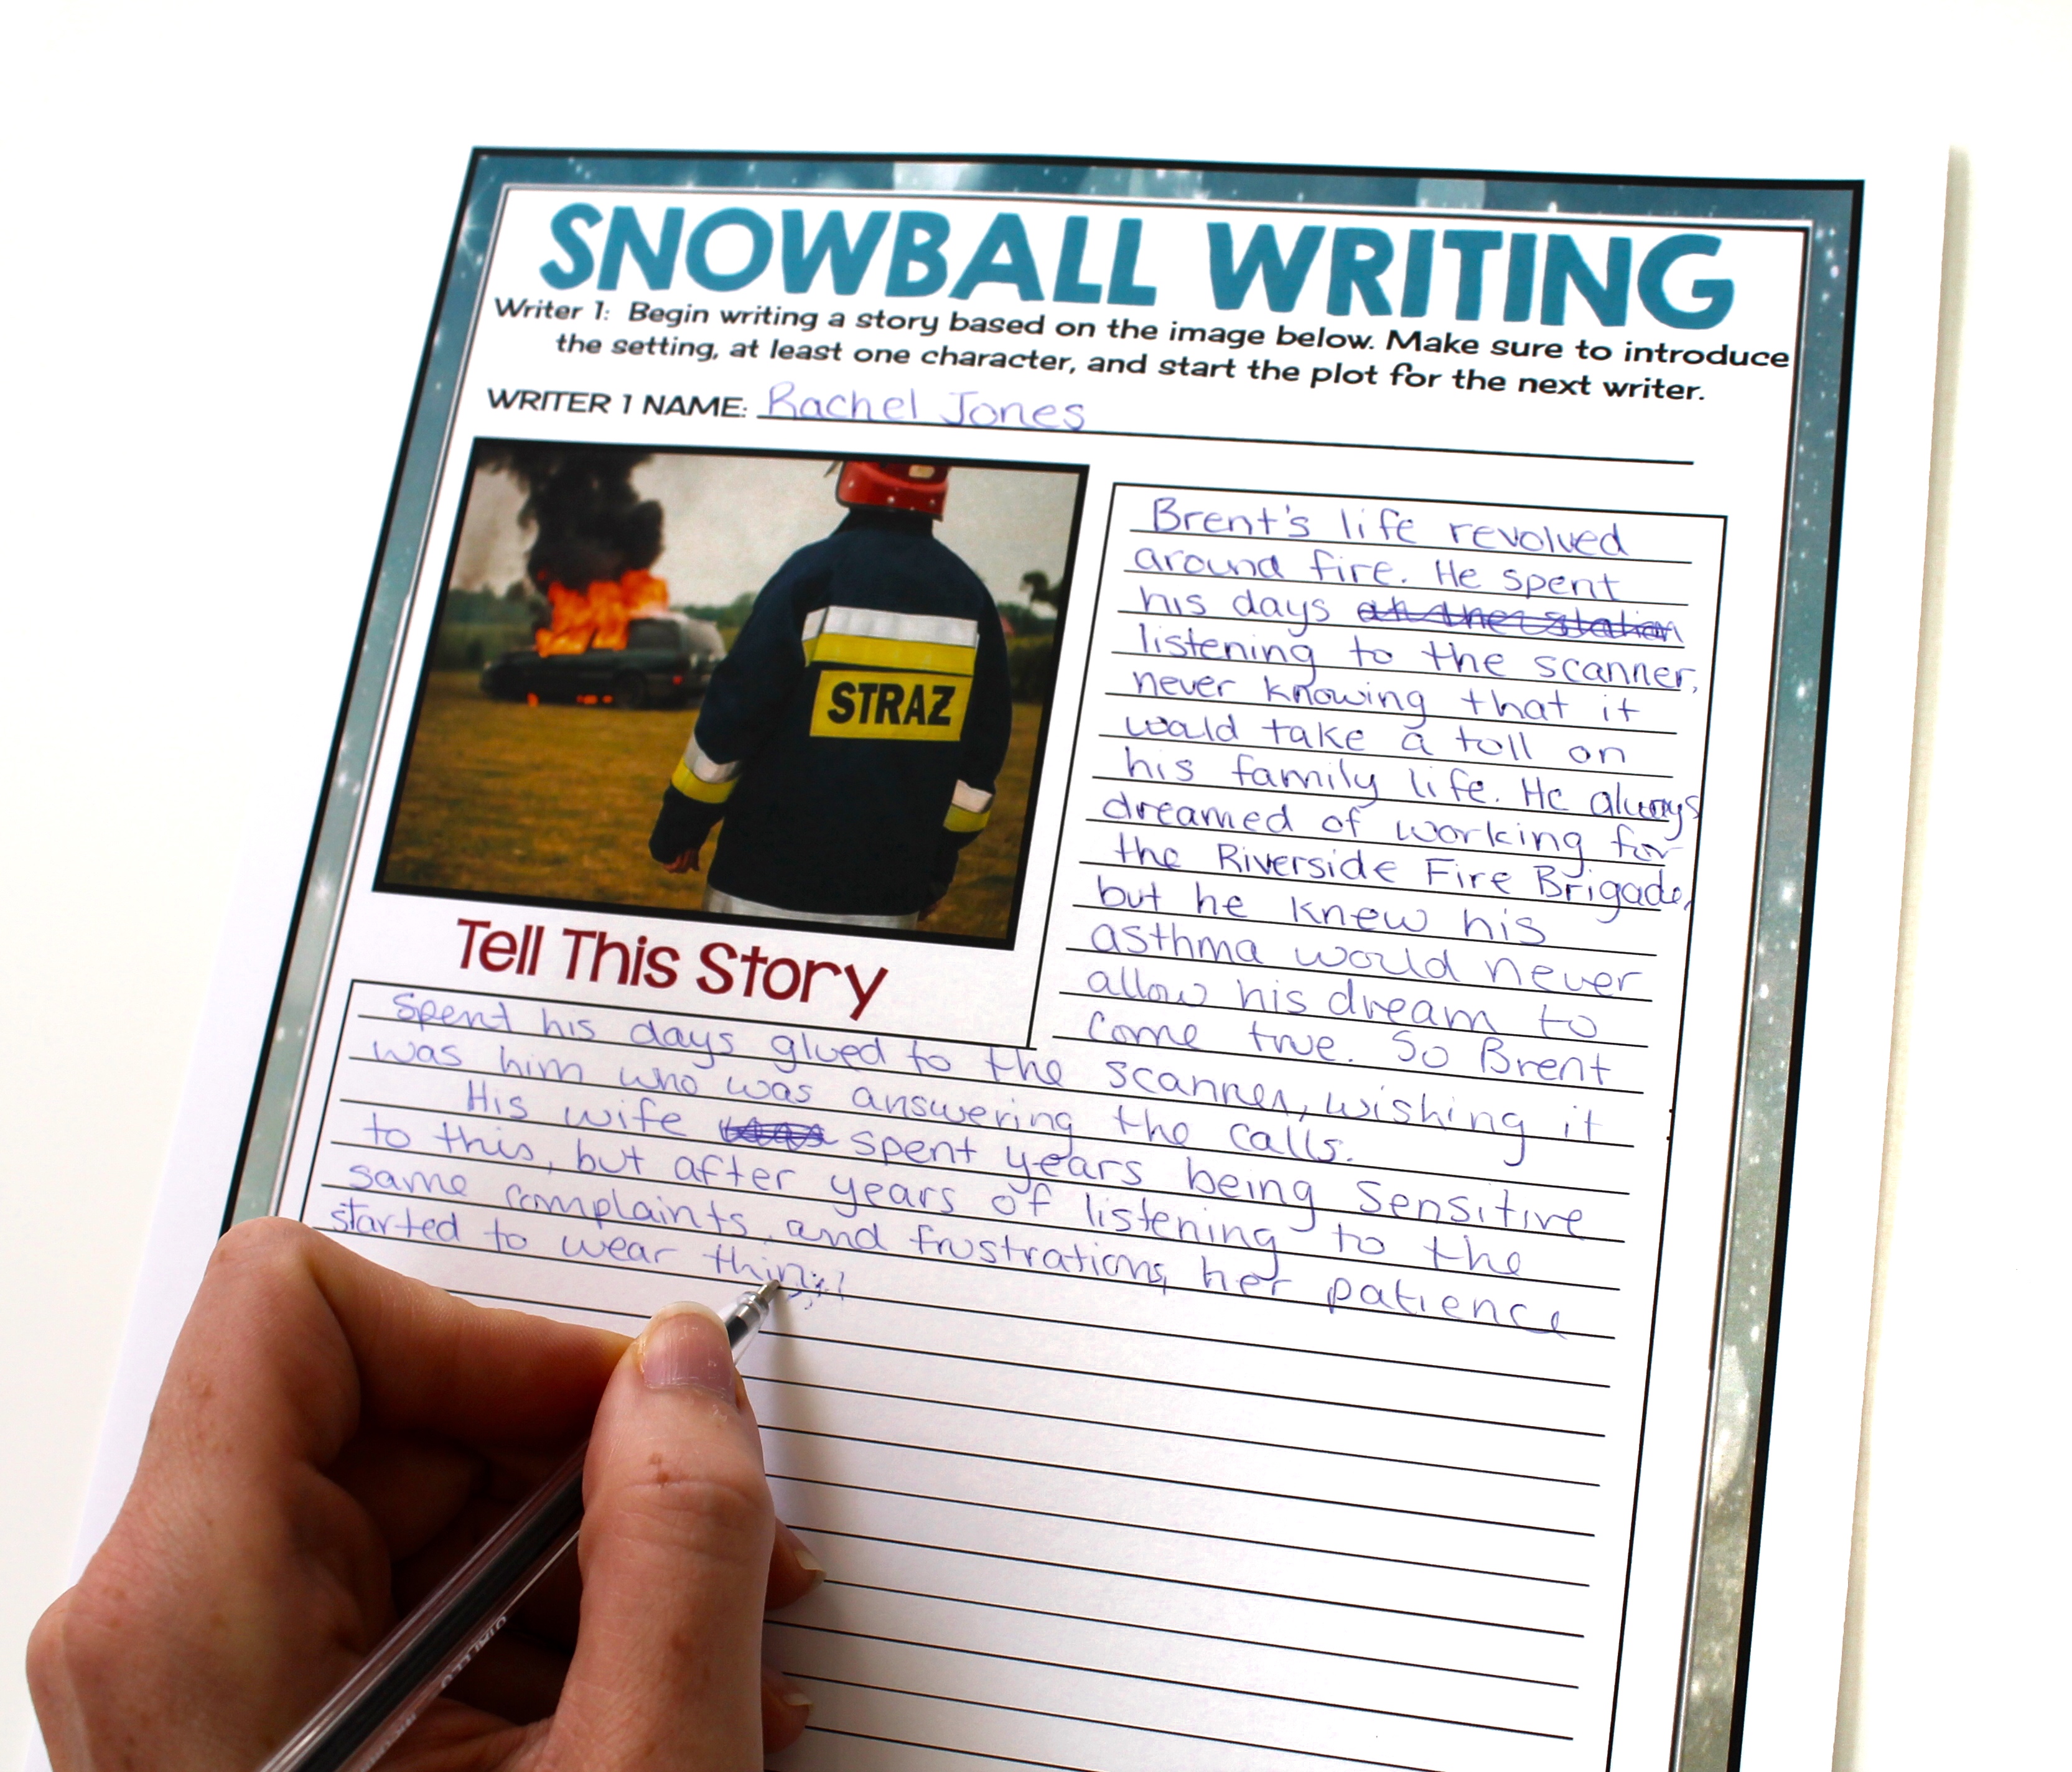 SNOWBALL WRITING
Writer 1: Begin writing a story based on the image below. Make sure to introduce
the setting, at least one character, and start the plot for the next writer.
WRITER 1 NAME: Rachel Jones
STRAZ
Tell This Story
Brent's life revolved
around fire. He spent
his days at the station
listening to the scanner,
never knowing that it
would take a toll on
his family life. He always
dreamed of working for
the Riverside Fire Brigade,
but he knew his
asthma would never
allow his dream to
come true. So Brent
spent his days glued to the scanner, wishing it
was him who was answering the calls.
His wife was spent years being sensitive
to this, but after years of listening to the
same complaints and frustrations, her patience
started to wear thin